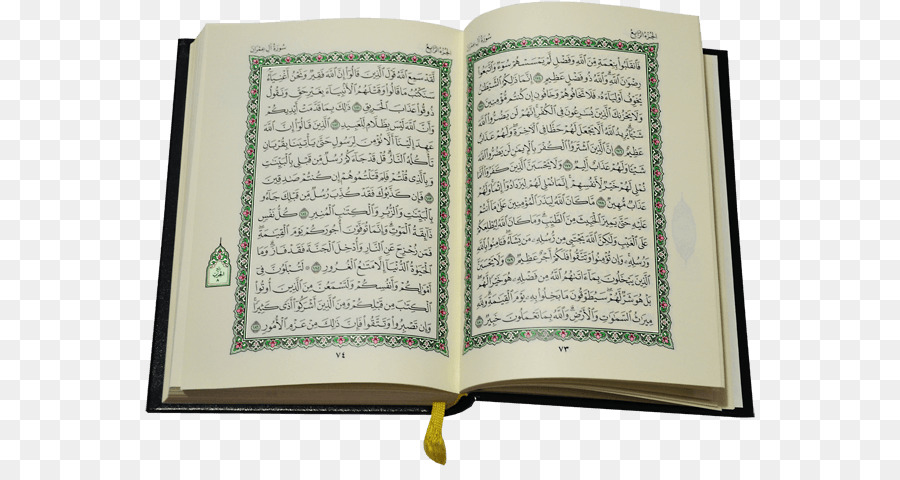 الجُزْءُ الرَّابِعُ سُورَةُ آلِ عِمْرَانَ
فَٱنقَلَبُوا۟ بِنِعْمَةٍ مِّنَ ٱللَّهِ وَفَضْلٍ لَّمْ يَمْسَسْهُمْ سُوٓءٌ وَٱتَّبَعُوا۟
رِضْوَٰنَ ٱللَّهِ وَٱللَّهُ ذُو فَضْلٍ عَظِيمٍ ١٧٤ إِنَّمَا ذَٰلِكُمُ ٱلشَّيْطَٰنُ
يُخَوِّفُ أَوْلِيَآءَهُۥ فَلَا تَخَافُوهُمْ وَخَافُونِ إِن كُنتُم مُّؤْمِنِينَ ١٧٥
وَلَا يَحْزُنكَ ٱلَّذِينَ يُسَٰرِعُونَ فِى ٱلْكُفْرِ إِنَّهُمْ لَن يَضُرُّوا۟ ٱللَّهَ
شَيْـًٔا يُرِيدُ ٱللَّهُ أَلَّا يَجْعَلَ لَهُمْ حَظًّا فِى ٱلْـَٔاخِرَةِ وَلَهُمْ عَذَابٌ
عَظِيمٌ ١٧٦ إِنَّ ٱلَّذِينَ ٱشْتَرَوُا۟ ٱلْكُفْرَ بِٱلْإِيمَٰنِ لَن يَضُرُّوا۟ ٱللَّهَ
شَيْـًٔا وَلَهُمْ عَذَابٌ أَلِيمٌ ١٧٧ وَلَا يَحْسَبَنَّ ٱلَّذِينَ كَفَرُوٓا۟ أَنَّمَا
نُمْلِى لَهُمْ خَيْرٌ لِّأَنفُسِهِمْ إِنَّمَا نُمْلِى لَهُمْ لِيَزْدَادُوٓا۟ إِثْمًا وَلَهُمْ
عَذَابٌ مُّهِينٌ ١٧٨ مَّا كَانَ ٱللَّهُ لِيَذَرَ ٱلْمُؤْمِنِينَ عَلَىٰ مَآ أَنتُمْ
عَلَيْهِ حَتَّىٰ يَمِيزَ ٱلْخَبِيثَ مِنَ ٱلطَّيِّبِ وَمَا كَانَ ٱللَّهُ لِيُطْلِعَكُمْ
عَلَى ٱلْغَيْبِ وَلَٰكِنَّ ٱللَّهَ يَجْتَبِى مِن رُّسُلِهِۦ مَن يَشَآءُ فَـَٔامِنُوا۟ بِٱللَّهِ
وَرُسُلِهِۦ وَإِن تُؤْمِنُوا۟ وَتَتَّقُوا۟ فَلَكُمْ أَجْرٌ عَظِيمٌ ١٧٩ وَلَا يَحْسَبَنَّ
ٱلَّذِينَ يَبْخَلُونَ بِمَآ ءَاتَىٰهُمُ ٱللَّهُ مِن فَضْلِهِۦ هُوَ خَيْرًا لَّهُم
بَلْ هُوَ شَرٌّ لَّهُمْ سَيُطَوَّقُونَ مَا بَخِلُوا۟ بِهِۦ يَوْمَ ٱلْقِيَٰمَةِ وَلِلَّهِ
مِيرَٰثُ ٱلسَّمَٰوَٰتِ وَٱلْأَرْضِ وَٱللَّهُ بِمَا تَعْمَلُونَ خَبِيرٌ ١٨٠
٧٣
الجُزْءُ الرَّابِعُ سُورَةُ آلِ عِمْرَانَ
لَّقَدْ سَمِعَ ٱللَّهُ قَوْلَ ٱلَّذِينَ قَالُوٓا۟ إِنَّ ٱللَّهَ فَقِيرٌ وَنَحْنُ أَغْنِيَآءُ
سَنَكْتُبُ مَا قَالُوا۟ وَقَتْلَهُمُ ٱلْأَنۢبِيَآءَ بِغَيْرِ حَقٍّ وَنَقُولُ
ذُوقُوا۟ عَذَابَ ٱلْحَرِيقِ ١٨١ ذَٰلِكَ بِمَا قَدَّمَتْ أَيْدِيكُمْ
وَأَنَّ ٱللَّهَ لَيْسَ بِظَلَّامٍ لِّلْعَبِيدِ ١٨٢ ٱلَّذِينَ قَالُوٓا۟ إِنَّ ٱللَّهَ
عَهِدَ إِلَيْنَآ أَلَّا نُؤْمِنَ لِرَسُولٍ حَتَّىٰ يَأْتِيَنَا بِقُرْبَانٍ
تَأْكُلُهُ ٱلنَّارُ قُلْ قَدْ جَآءَكُمْ رُسُلٌ مِّن قَبْلِى بِٱلْبَيِّنَٰتِ
وَبِٱلَّذِى قُلْتُمْ فَلِمَ قَتَلْتُمُوهُمْ إِن كُنتُمْ صَٰدِقِينَ
١٨٣ فَإِن كَذَّبُوكَ فَقَدْ كُذِّبَ رُسُلٌ مِّن قَبْلِكَ جَآءُو
بِٱلْبَيِّنَٰتِ وَٱلزُّبُرِ وَٱلْكِتَٰبِ ٱلْمُنِيرِ ١٨٤ كُلُّ نَفْسٍ
ذَآئِقَةُ ٱلْمَوْتِ وَإِنَّمَا تُوَفَّوْنَ أُجُورَكُمْ يَوْمَ ٱلْقِيَٰمَةِ
فَمَن زُحْزِحَ عَنِ ٱلنَّارِ وَأُدْخِلَ ٱلْجَنَّةَ فَقَدْ فَازَ وَمَا
ٱلْحَيَوٰةُ ٱلدُّنْيَآ إِلَّا مَتَٰعُ ٱلْغُرُورِ ١٨٥ لَتُبْلَوُنَّ فِىٓ
أَمْوَٰلِكُمْ وَأَنفُسِكُمْ وَلَتَسْمَعُنَّ مِنَ ٱلَّذِينَ أُوتُوا۟
ٱلْكِتَٰبَ مِن قَبْلِكُمْ وَمِنَ ٱلَّذِينَ أَشْرَكُوٓا۟ أَذًى كَثِيرًا
وَإِن تَصْبِرُوا۟ وَتَتَّقُوا۟ فَإِنَّ ذَٰلِكَ مِنْ عَزْمِ ٱلْأُمُورِ ١٨٦
٧٤